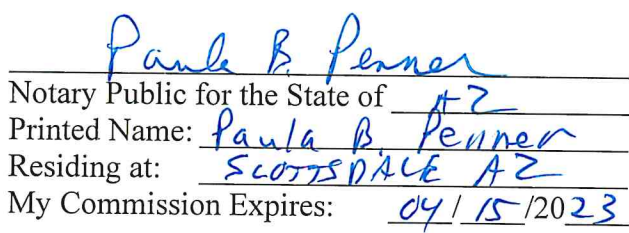 Paula B. Penner
Notary Public for the State of AZ
Printed Name: Paula B. Penner
Residing at: SCOTTSDALE AZ
My Commission Expires: 04/15/2023